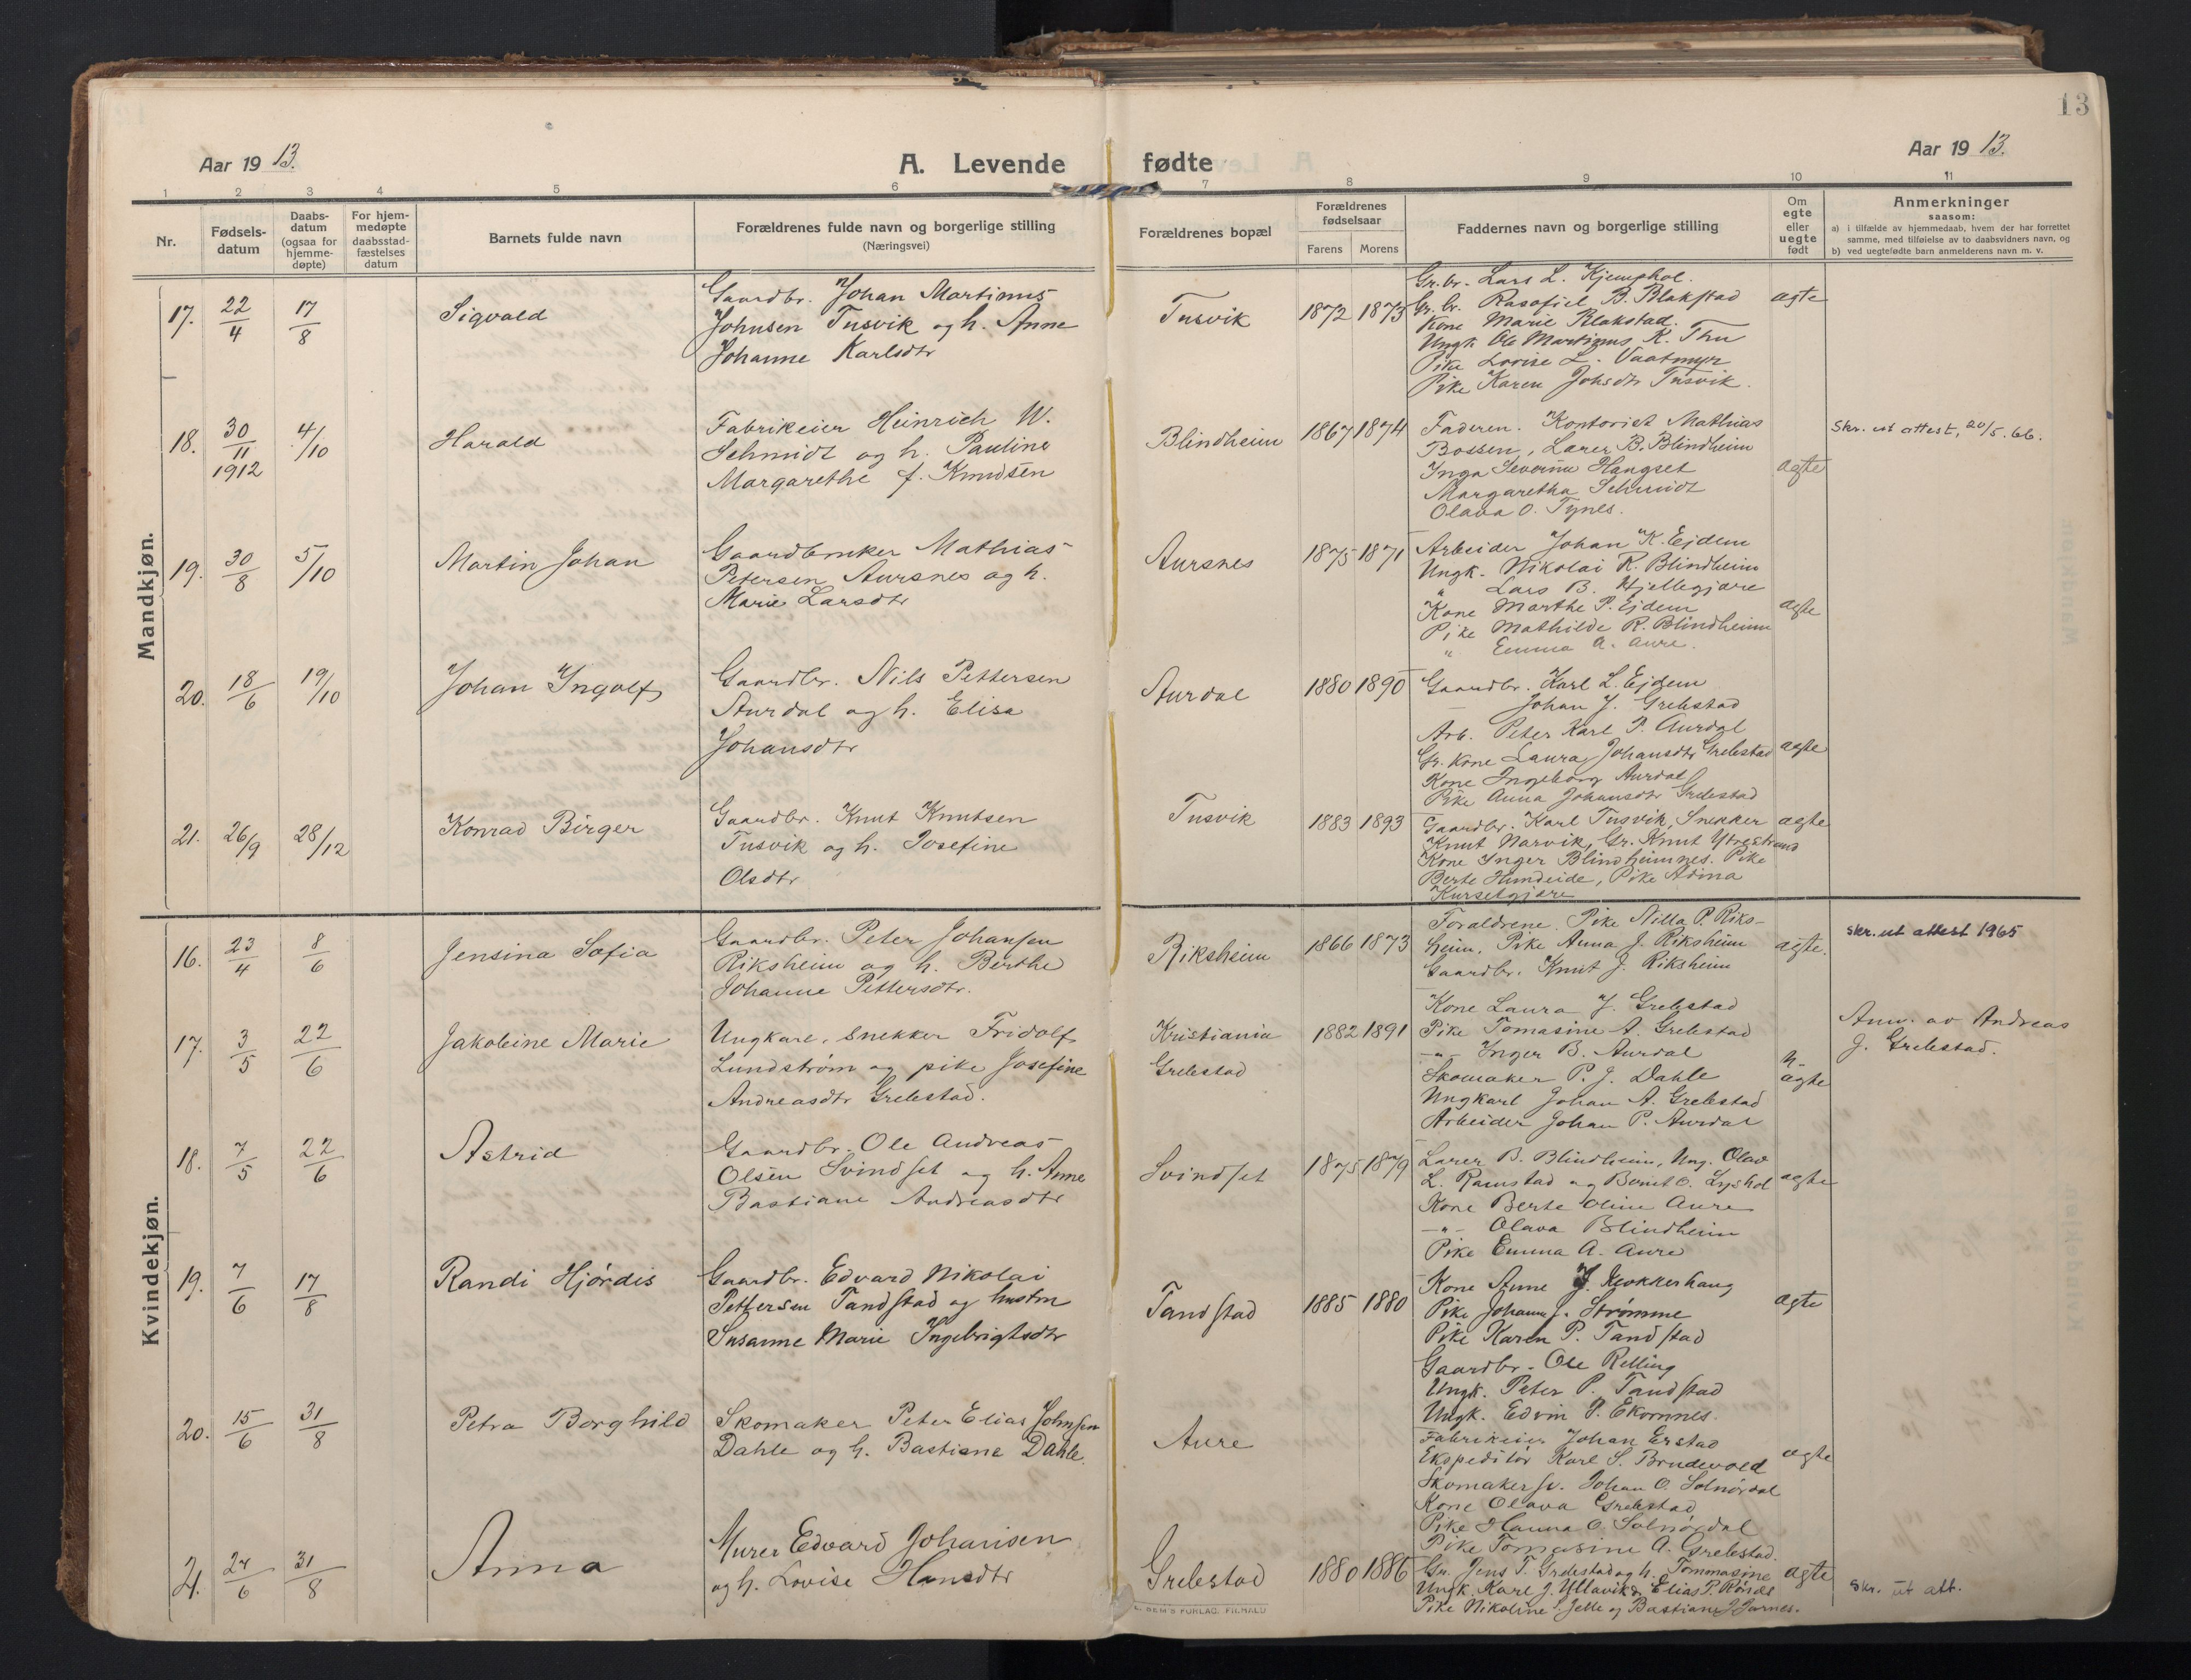 13
Aar 19 13.
A. Levende fødte
Aar 19 13.
1 2 3 4 5 6 7 8 9 10 11
Nr.
Fødsels-
datum
Daabs-
datum
(ogsaa for
hjemme-
døpte)
For hjem-
medøpte
daabsstad-
fæstelses
datum
Barnets fulde navn
Forældrenes fulde navn og borgerlige stilling
(Næringsvei)
Forældrenes bopæl
Forældrenes
fødselsaar
Farens Morens
Faddernes navn og borgerlige stilling
Om
egte
eller
uegte
født
Anmerkninger
saasom:
a) i tilfælde av hjemmedaab, hvem der har forrettet
samme, med tilføielse av to daabsvidners navn, og
b) ved uegtefødte barn anmelderens navn m. v.
Mandkjøn.
17. 22/4 17/8 Sigvald
Gaardbr. Johan Martinus
Johnsen Tusvik og h. Anne
Johanne Karlsdtr
Tusvik 1872 1873
Gr. br. Lars L. Kjemphol.
Gr. br. Rasofiel B. Blakstad
Kone Marie Blakstad.
Ungk. Ole Martinus K. Thu
Pike Lovise L. Vaatmyr
Pike Karen Johsdtr Tusvik.
ægte
18. 30/11 1912 4/10 Harald
Fabrikeier Heinrich W.
Schmidt og h. Pauline
Margarethe f. Knudsen
Blindheim 1867 1874
Faderen. Kontorist Mathias
Bossen, Lærer B. Blindheim
Inga Severine Hangset
Margaretha Schmidt
Olava O. Tynes.
ægte
Skr. ut attest, 20/5.66.
19. 30/8 5/10 Martin Johan
Gaardbruker Mathias
Petersen Aursnes og h.
Marie Larsdtr
Aursnes 1875 1871
Arbeider Johan K. Ejdem
Ungk. Nikolai R. Blindheim
" Lars B. Hjellegjære
Kone Marthe P. Ejdem
Pike Mathilde R. Blindheim
" Emma A. Aure.
ægte
20. 18/6 19/10 Johan Ingolf
Gaardbr. Nils Pettersen
Aurdal og h. Elisa
Johansdtr
Aurdal 1880 1890
Gaardbr. Karl L. Ejdem
— Johan J. Grebstad
Arb. Peter Karl P. Aurdal
Gr. Kone Laura Johansdtr Grebestad
Kone Ingeborg Aurdal
Pike Anna Johansdtr Grebestad
ægte
21. 26/9 28/12 Konrad Birger
Gaardbr. Knut Knutsen
Tusvik og h. Josefine
Olsdtr
Tusvik 1883 1893
Gaardbr. Karl Tusvik, Snekker
Knut Narvik, Gr. Knut Ytrestrand
Kone Inger Blindheimnes. Pike
Berte Hundeide, Pike Adina
Kursetgjære
ægte
Kvindekjøn.
16. 23/4 8/6 Jensina Sofia
Gaardbr. Peter Johansen
Riksheim og h. Berthe
Johanne Pettersdtr.
Riksheim 1866 1873
Forældrene. Pike Nilla P. Riks-
heim, Pike Anna J. Riksheim
Gaardbr. Knut J. Riksheim
ægte.
skr. ut attest 1965
17. 3/5 22/6 Jakobine Marie
Ungkare, snekker Fridolf
Lundstrøm og pike Josefine
Andreasdtr Grebestad.
Kristiania
Grebestad
1882 1891
Kone Laura J. Grebstad
Pike Tomasine A. Grebstad
-"- Inger B. Aurdal
Skomaker P. J. Dahle
Ungkarl Johan A. Grebestad
Arbeider Johan P. Aurdal
u-
ægte
Anm. av Andreas
J. Grebestad.
18. 7/5 22/6 Astrid
Gaardbr. Ole Andreas
Olsen Svindset og h. Anne
Bastiane Andreasdtr
Svindset 1875 1879
Lærer B. Blindheim, Ung. Olav
L. Ramstad og Bernt O. Lyshol
Kone Berte Oline Aure
-"- Olava Blindheim
Pike Emma A. Aure
ægte
19. 7/6 17/8 Randi Hjørdis
Gaardbr. Edvard Nikolai
Pettersen Tandstad og hustru
Susanne Marie Ingebrigtsdtr
Tandstad 1885 1880
Kone Anne J. Klokkerhaug
Pike Johanne J. Strømme
Pike Karen P. Tandstad
Gaardbr. Ole Relling
Ungk. Peter P. Tandstad
Ungk. Edvin P. Ekornnes.
ægte
20. 15/6 31/8 Petra Borghild
Skomaker Peter Elias Johnsen
Dahle og h. Bastiane Dahle.
Aure
Fabrikeier Johan Erstad
Ekspeditør Karl S. Brudevold
Skomakersv. Johan O. Solnørdal
Kone Olava Grebstad
Pike Hanna O. Solnørdal
Pike Tomasine A. Grebestad.
ægte
21. 27/6 31/8 Anna
Murer Edvard Johansen
og h. Lovise Hansdtr
Grebestad 1880 1886
Gr. Jens T. Grebestad og h. Tommasine
Ungk. Karl J. Yttavik & Elias P. Rønes
Pike Nikoline S. Jelle og Bastiane J. Jarnes.
ægte
skr. ut att.
SEM'S FORLAG. FR.HALD